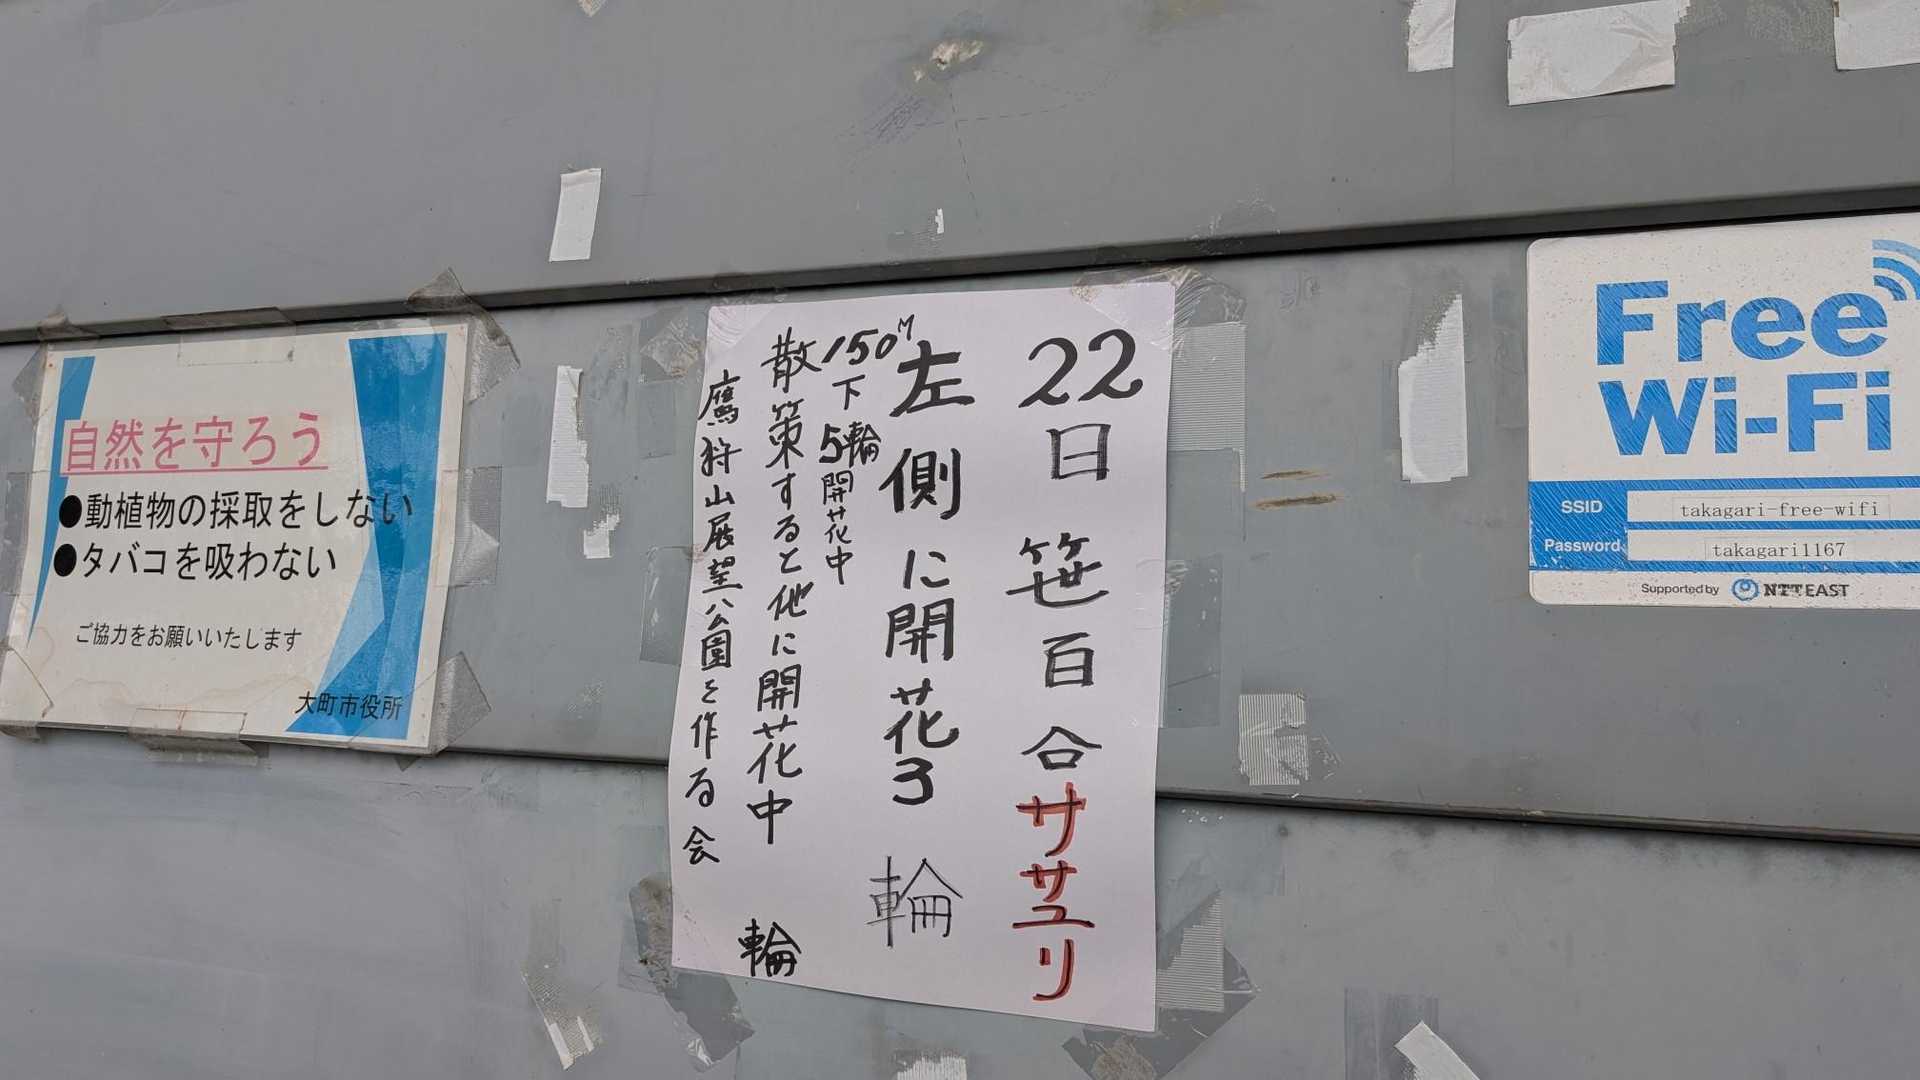 自然を守ろう
●動植物の採取をしない
●タバコを吸わない
ご協力をお願いいたします
大町市役所
22日笹百合ササユリ
左側に開花3輪
150M下5輪開花中
散策すると他に開花中 輪
鷹狩山展望公園を作る会
Free
Wi-Fi
SSID takagari-free-wifi
Password takagari1167
Supported by NTT EAST